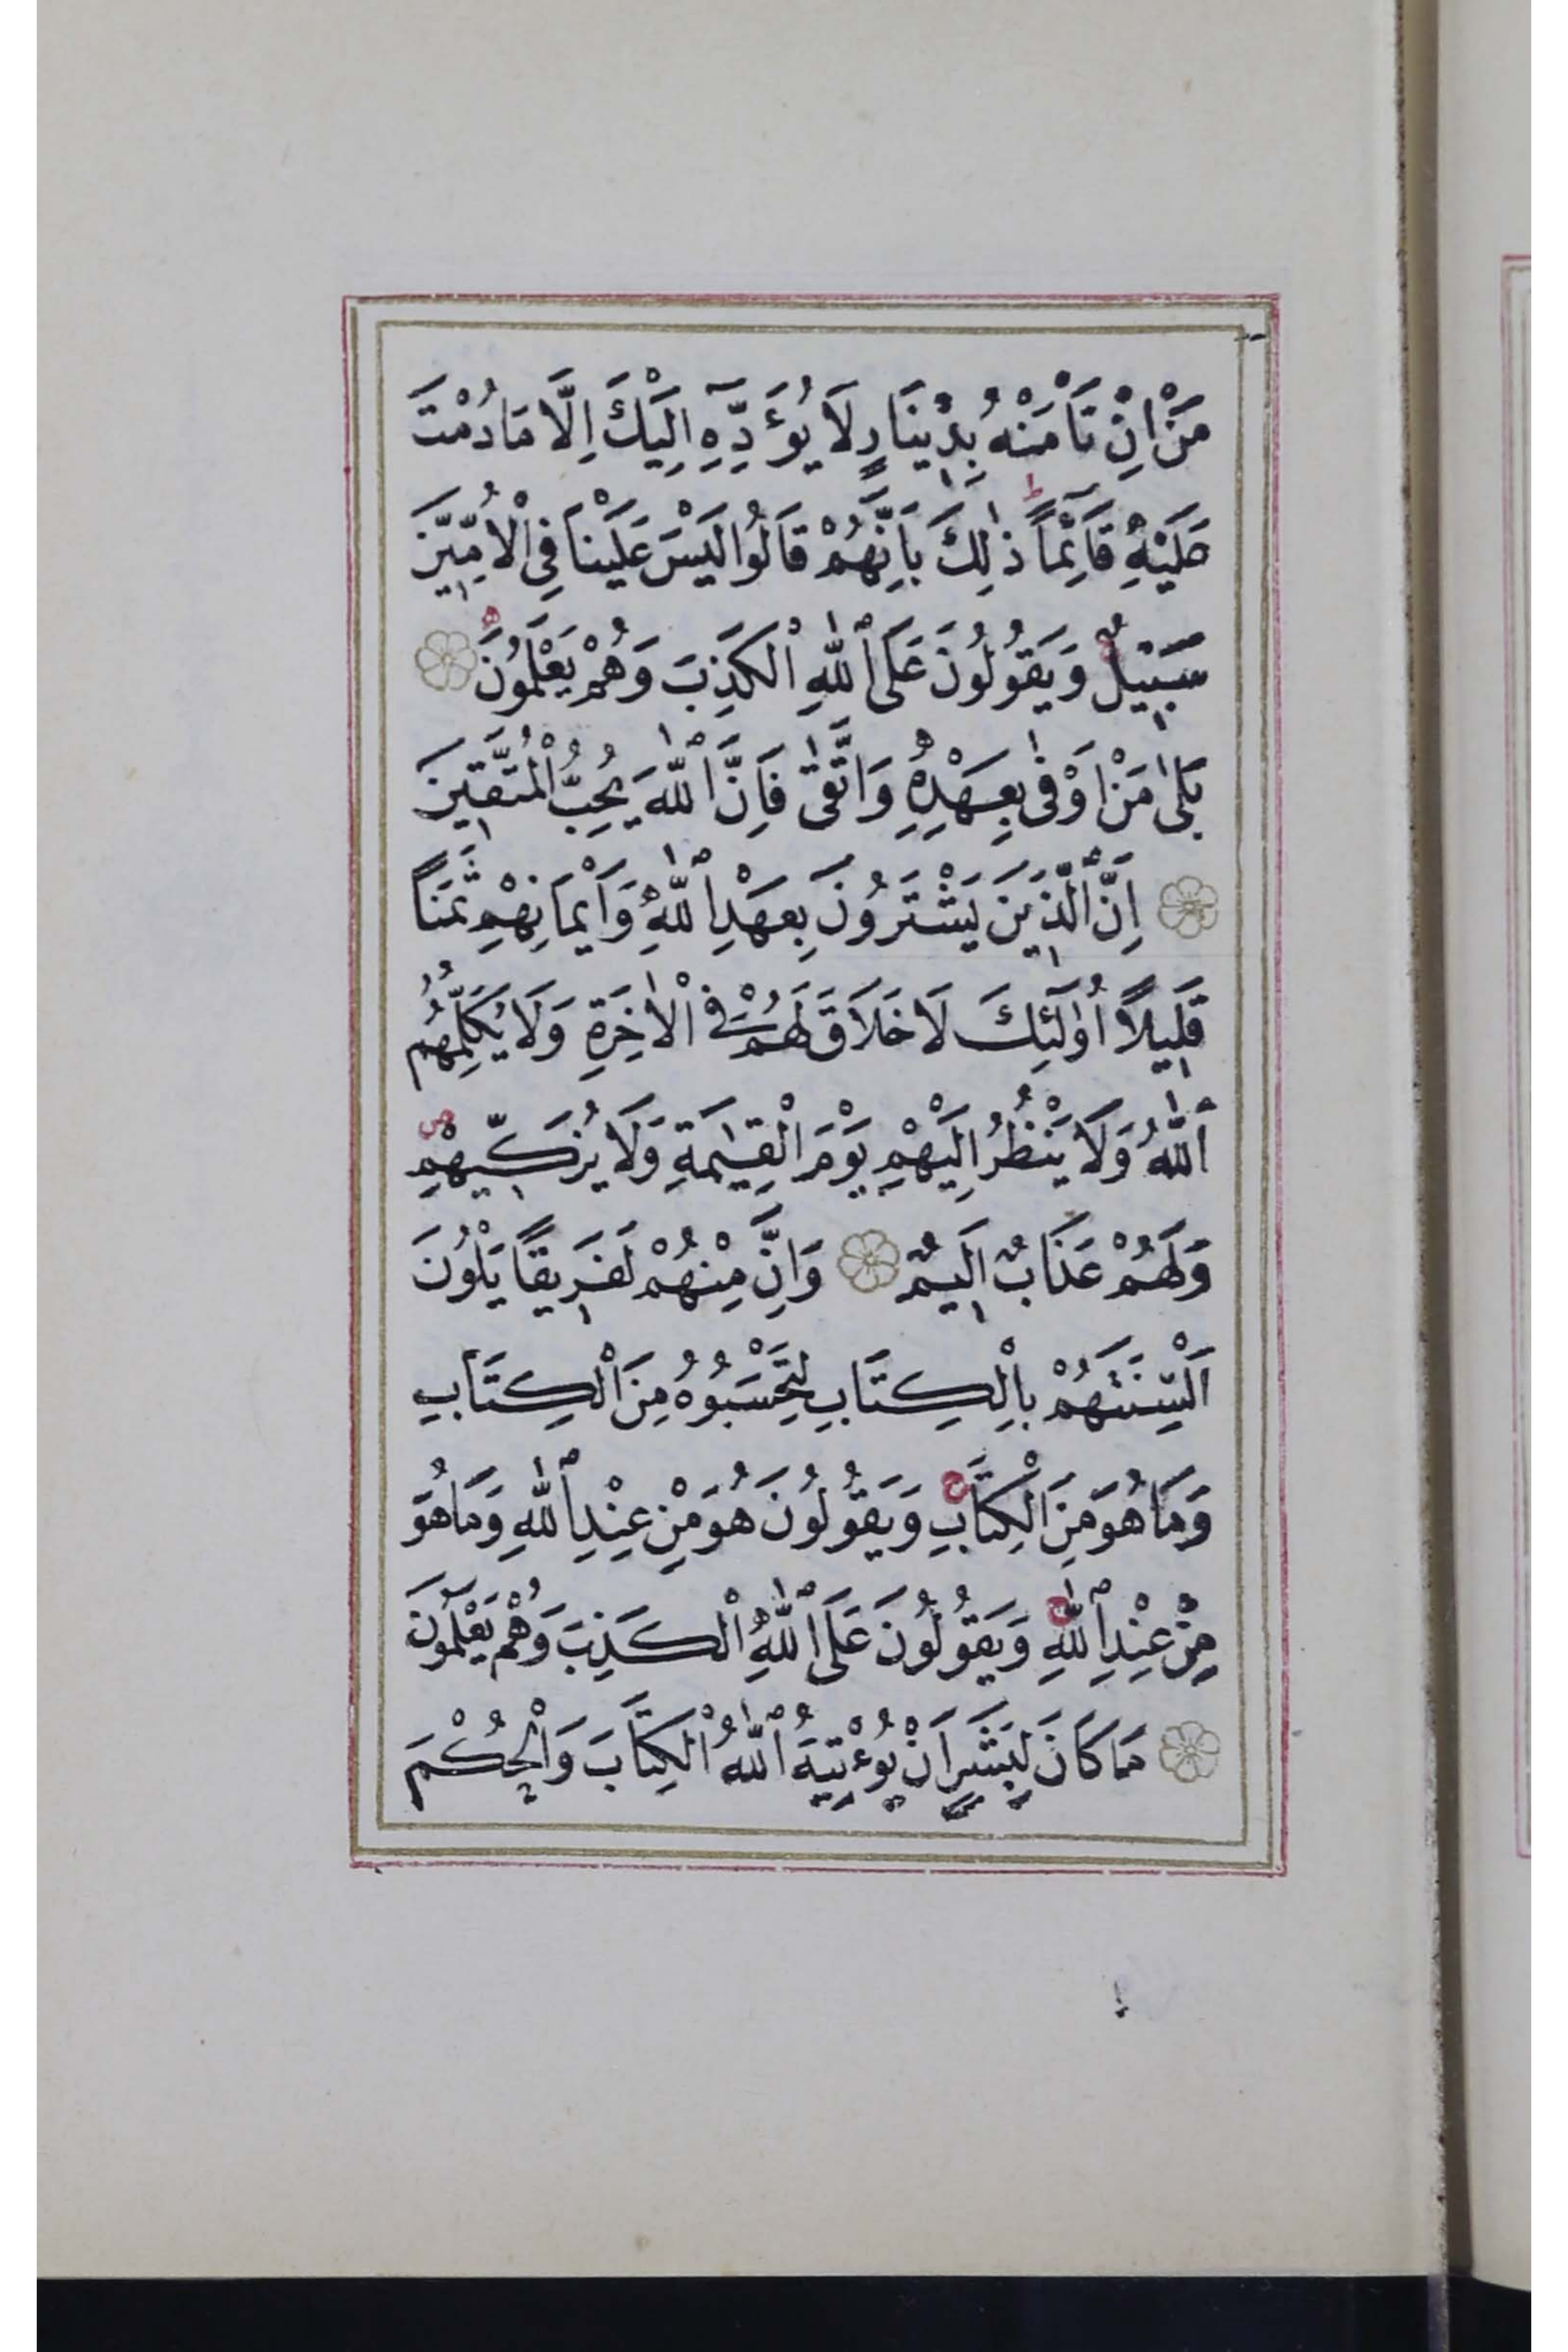 مَنْ اِنْ تَأْمَنْهُ بِدِيْنَارٍ لَا يُؤَدِّهٖٓ اِلَيْكَ اِلَّا مَا دُمْتَ
عَلَيْهِ قَآئِمًا ط ذٰلِكَ بِاَنَّهُمْ قَالُوا لَيْسَ عَلَيْنَا فِى الْاُمِّيّٖنَ
سَبٖيْلٌ ج وَيَقُولُونَ عَلَى اللّٰهِ الْكَذِبَ وَهُمْ يَعْلَمُونَ
بَلٰى مَنْ اَوْفٰى بِعَهْدِهٖ وَاتَّقٰى فَاِنَّ اللّٰهَ يُحِبُّ الْمُتَّقٖينَ
اِنَّ الَّذٖينَ يَشْتَرُونَ بِعَهْدِ اللّٰهِ وَاَيْمَانِهِمْ ثَمَنًا
قَلٖيلًا اُولٰٓئِكَ لَا خَلَاقَ لَهُمْ فِى الْاٰخِرَةِ وَلَا يُكَلِّمُهُمُ
اللّٰهُ وَلَا يَنْظُرُ اِلَيْهِمْ يَوْمَ الْقِيٰمَةِ وَلَا يُزَكّٖيهِمْ ص
وَلَهُمْ عَذَابٌ اَلٖيمٌ وَاِنَّ مِنْهُمْ لَفَرٖيقًا يَلْوُنَ
اَلْسِنَتَهُمْ بِالْكِتَابِ لِتَحْسَبُوهُ مِنَ الْكِتَابِ
وَمَا هُوَ مِنَ الْكِتَابِ ج وَيَقُولُونَ هُوَ مِنْ عِنْدِ اللّٰهِ وَمَا هُوَ
مِنْ عِنْدِ اللّٰهِ ج وَيَقُولُونَ عَلَى اللّٰهِ الْكَذِبَ وَهُمْ يَعْلَمُونَ
مَا كَانَ لِبَشَرٍ اَنْ يُؤْتِيَهُ اللّٰهُ الْكِتَابَ وَالْحُكْمَ